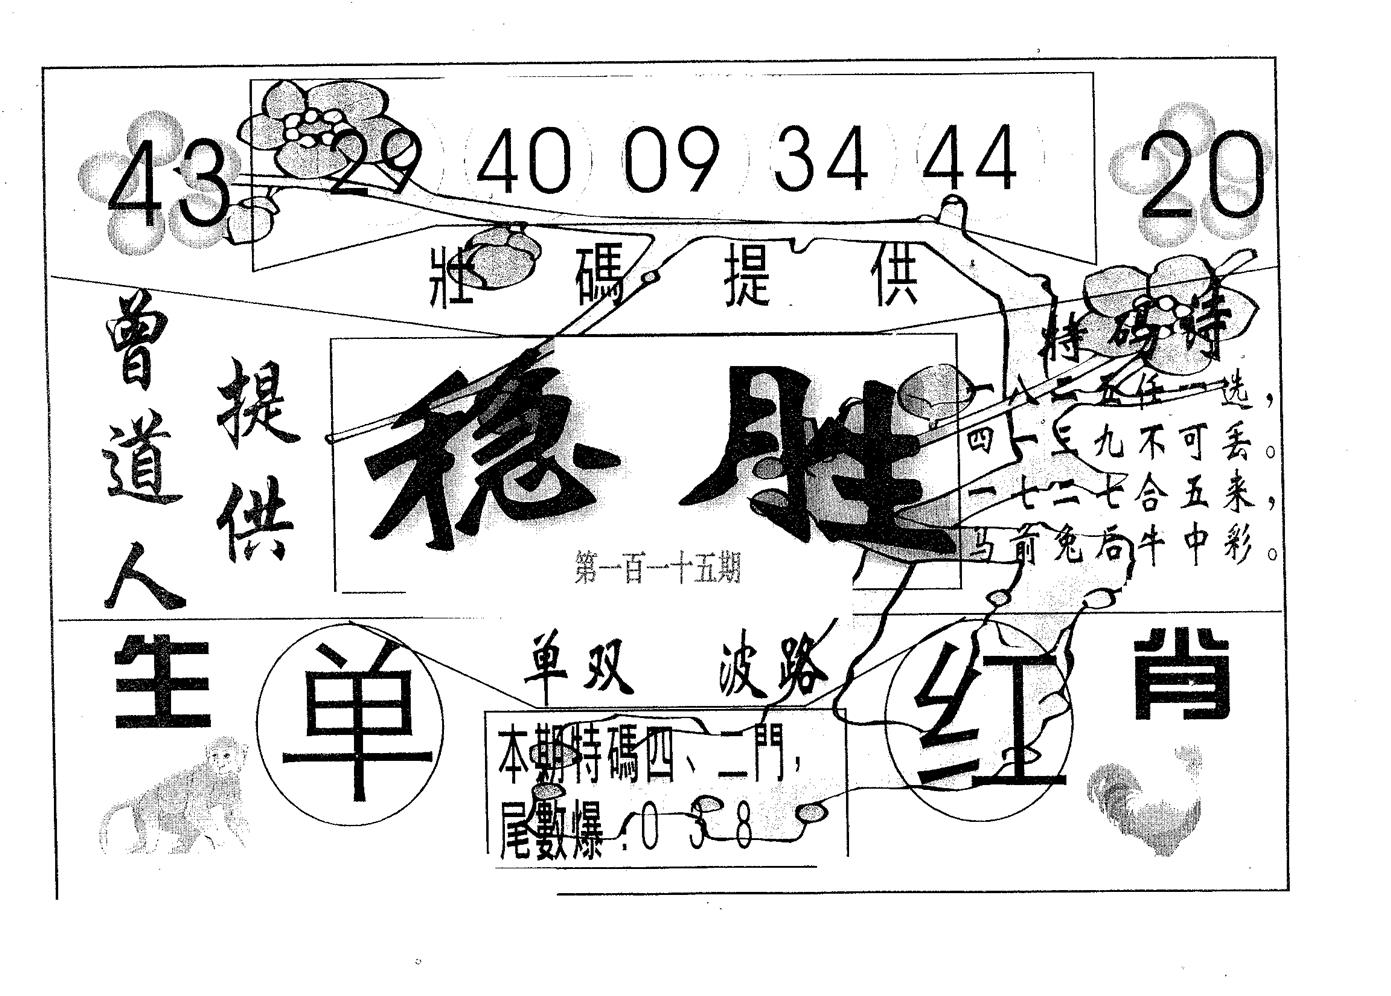 43 29 40 09 34 44 20
壯碼提供
曾道人
提供
特码诗
一八二五任一选，
四一三九不可丢。
一七二七合五来，
马前兔后牛中彩。
稳胜
第一百一十五期
生肖
单双 波路
单 红
本期特碼四、二門，
尾數爆：0 3 8